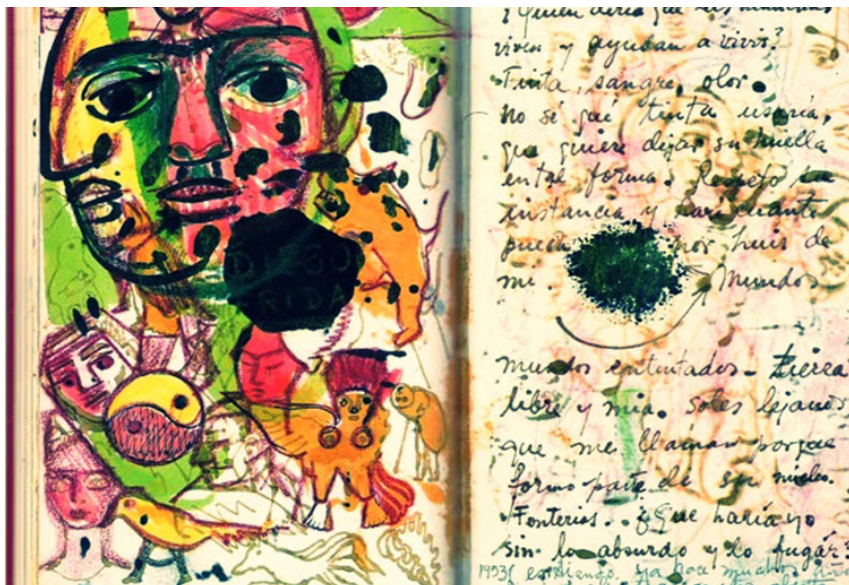 DIEGO
FRIDA
¿Quién diría que las manchas
viven y ayudan a vivir?
Tinta, sangre, olor.
No sé qué tinta usaría,
que quiere dejar su huella
en tal forma. Respeto su
instancia y haré cuanto
pueda por huir de
mi. Mundos
mundos entintados - tierra
libre y mía. soles lejanos
que me llaman porque
formo parte de su núcleo.
Tonterías. ¿Que haría yo
sin lo absurdo y lo fugáz?
1953 entiendo ya hace muchos